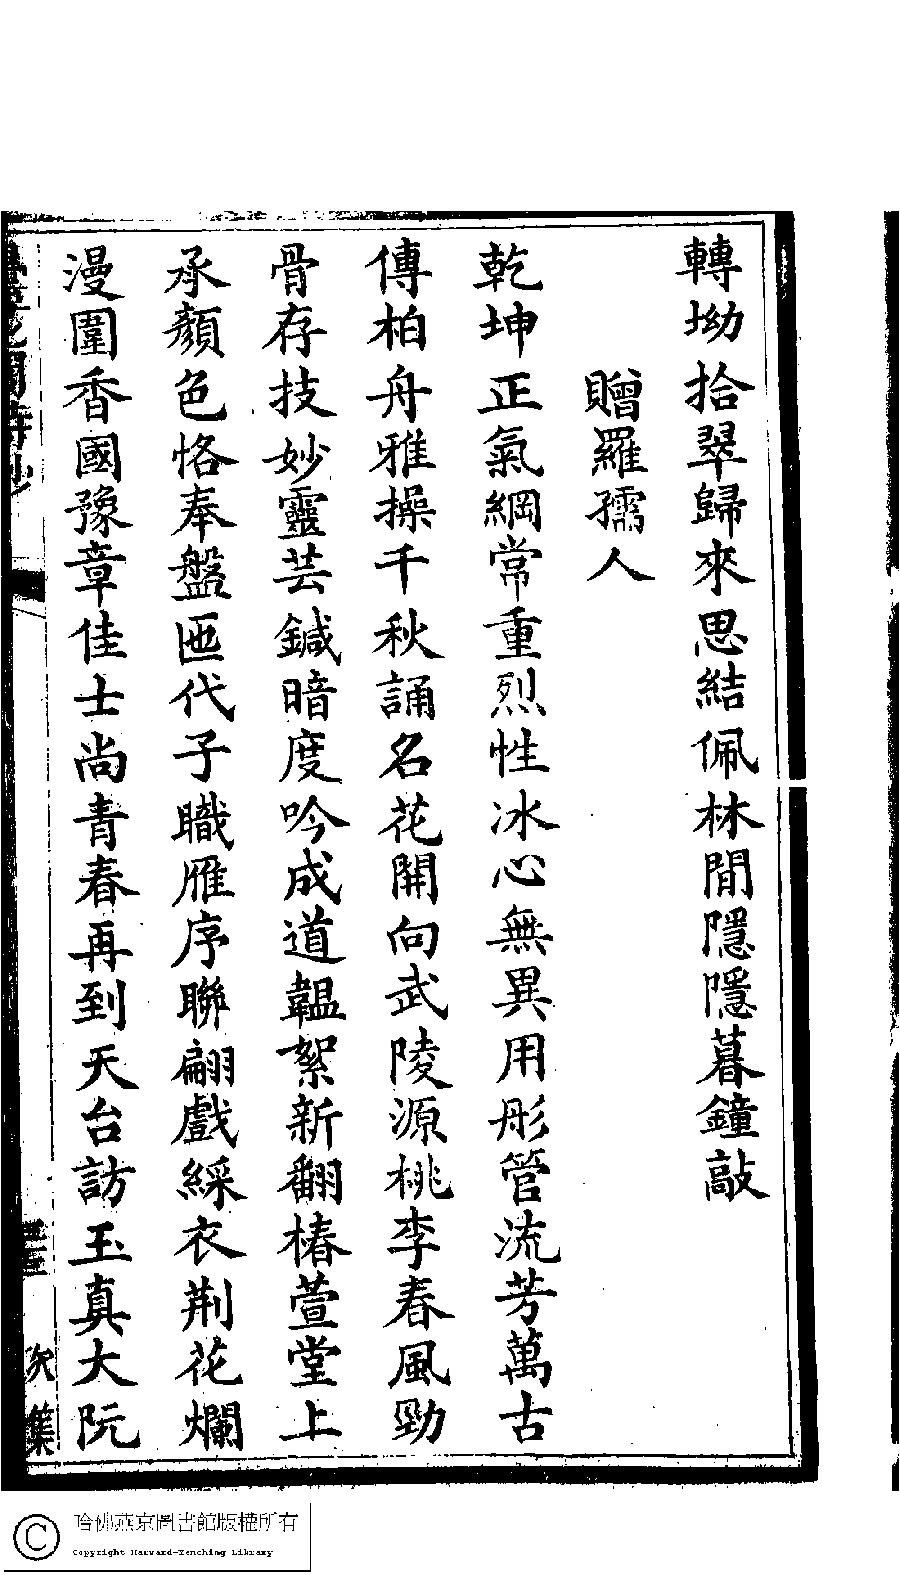 轉坳拾翠歸來思結佩林間隱隱暮鐘敲
贈羅孺人
乾坤正氣綱常重烈性冰心無異用彤管流芳萬古
傳柏舟雅操千秋誦名花開向武陵源桃李春風勁
骨存技妙靈芸鍼暗度吟成道韞絮新翻椿萱堂上
承顏色恪奉盤匜代子職雁序聯翩戲綵衣荆花爛
漫圍香國豫章佳士尚青春再到天台訪玉真大阮
次集
哈佛燕京圖書館版權所有
Copyright Harvard-Yenching Library